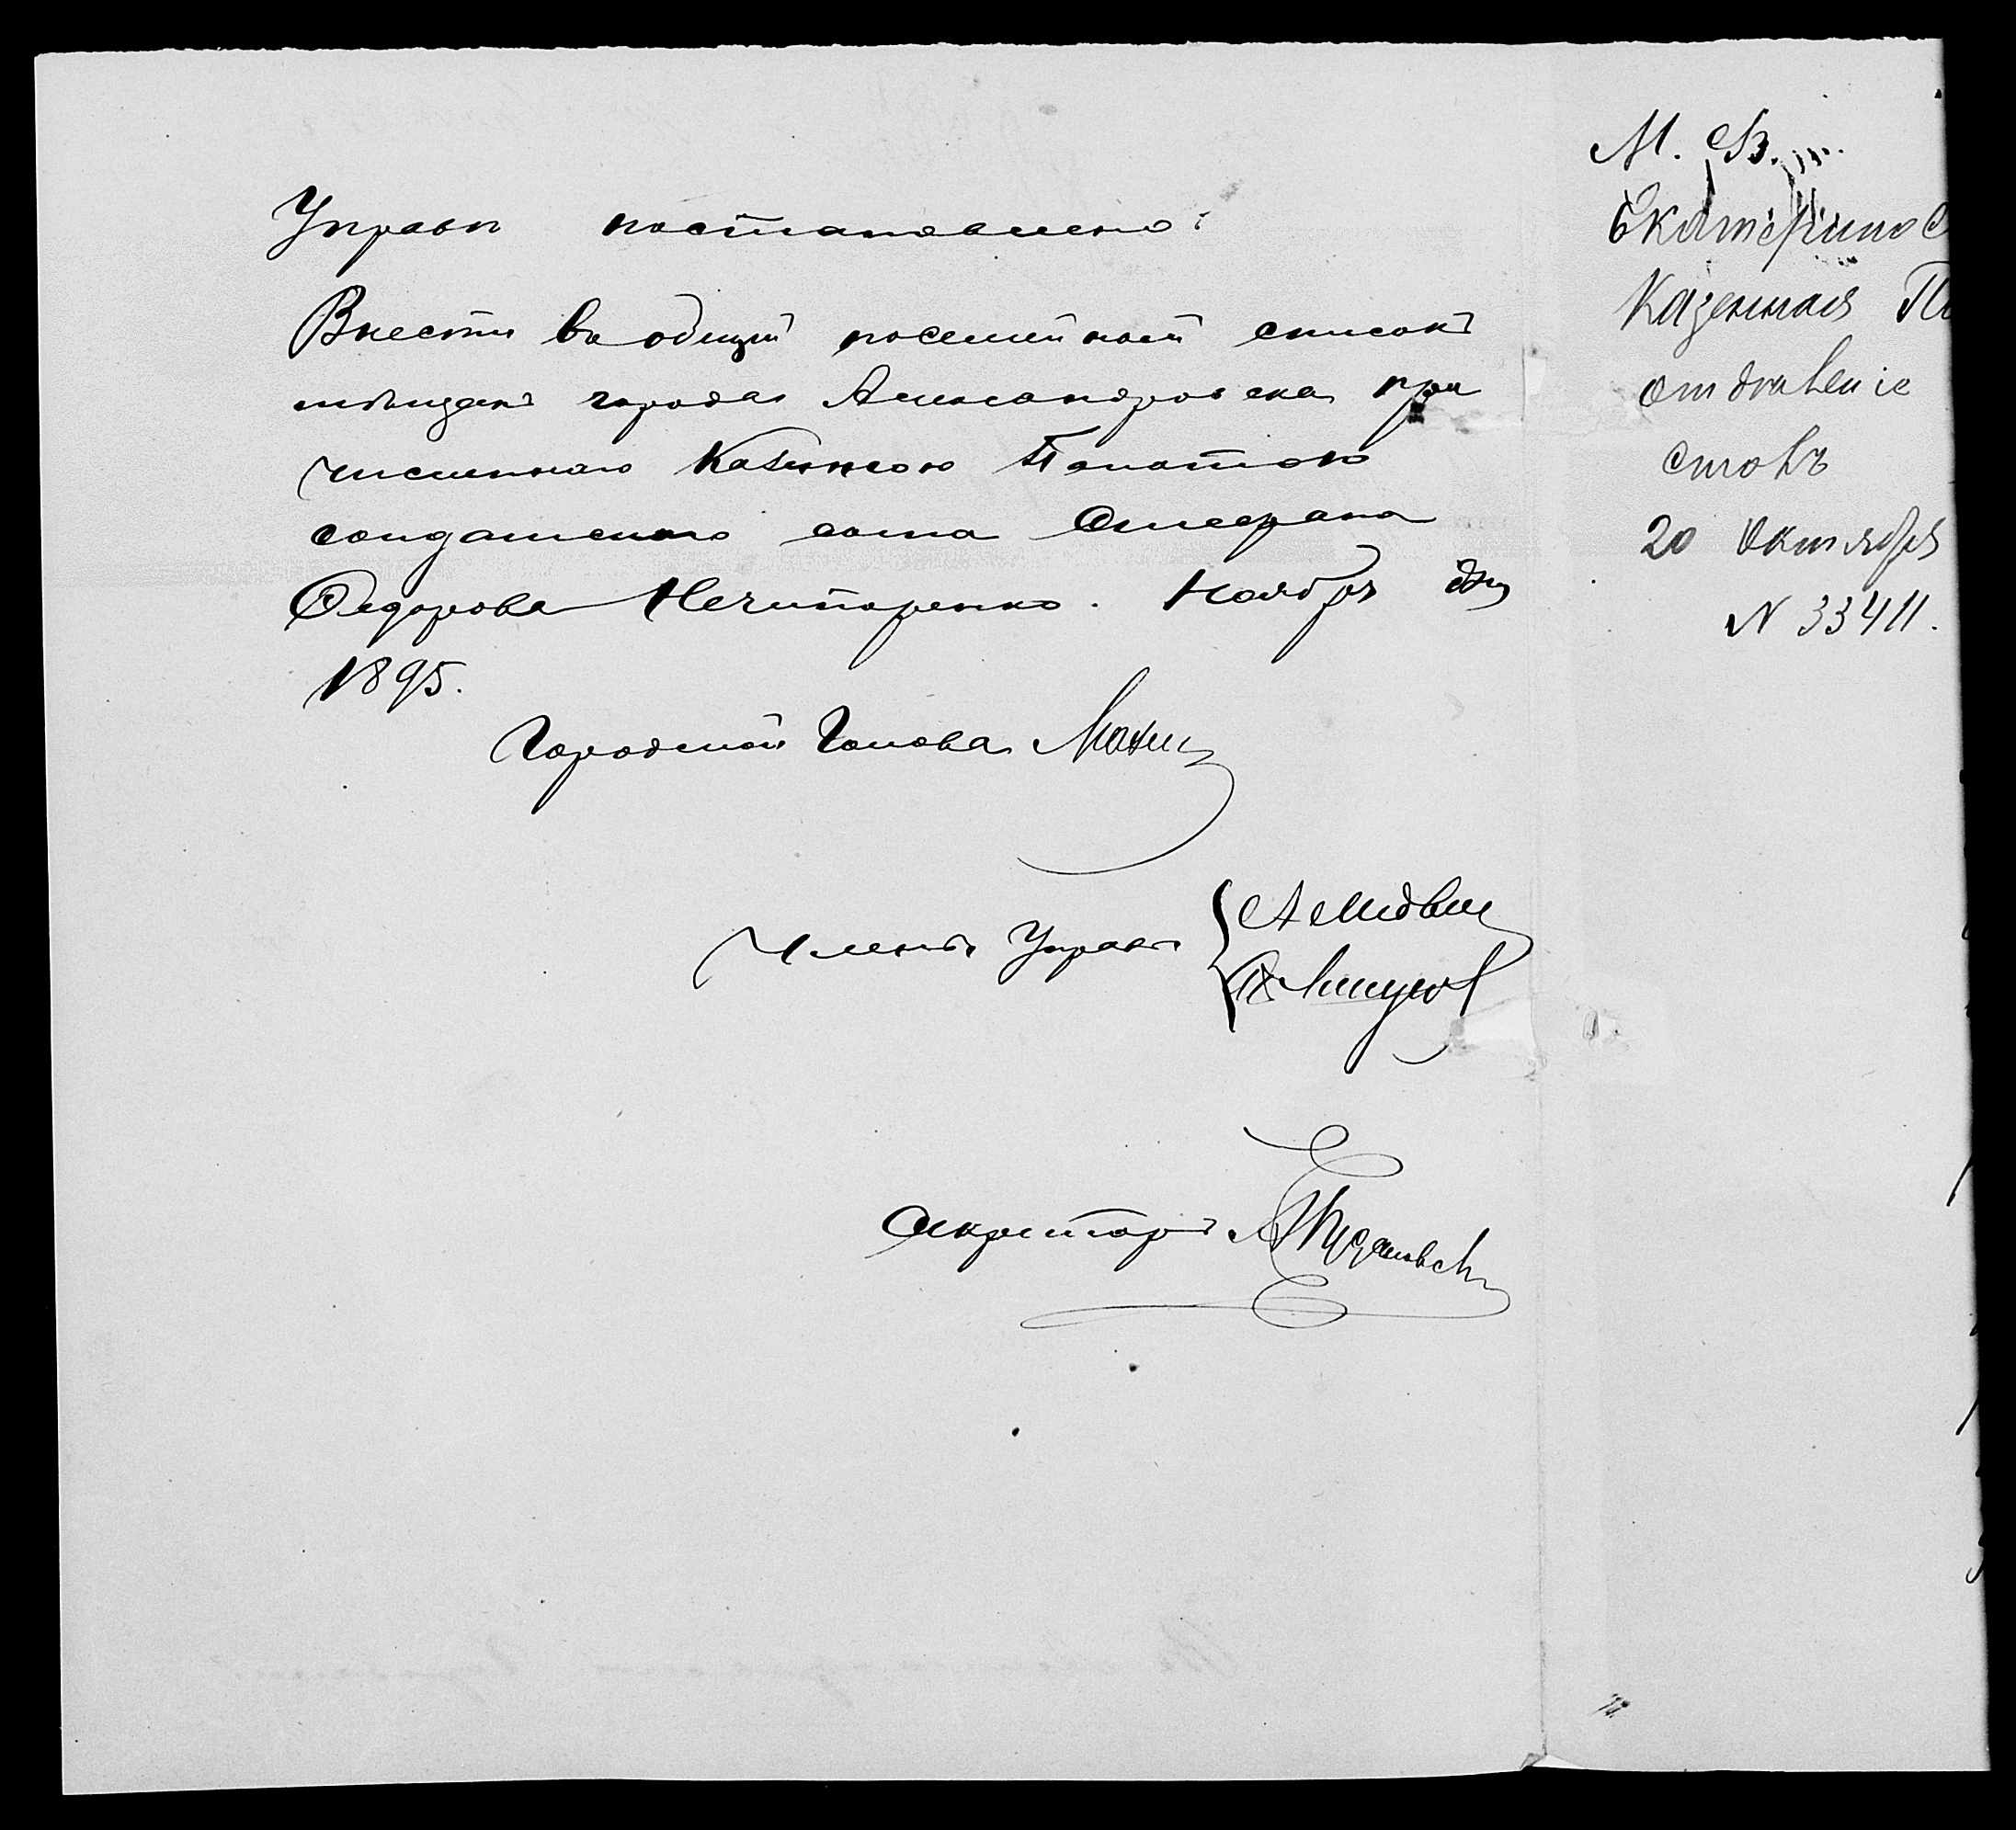 Управы постановлено:
Внести въ общій посемейный списокъ
мѣщанъ города Александровска при
численнаго Казенною Палатою
солдатскаго сына
Федорова Нечипоренко. Ноября дня
1895.
Городской Голова
Члены Управы
Секретарь
М. Ф.
Екатеринос
Казенная Па
отдѣленіе
столъ
20 Октября
N 33411.